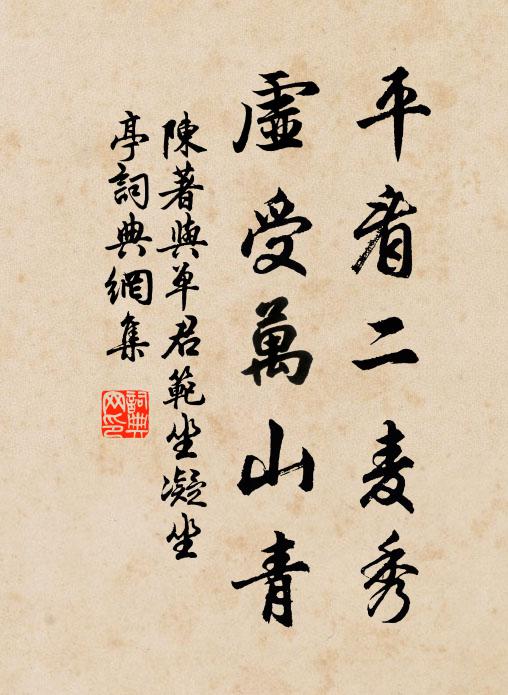 平看二麦秀
虛受萬山青
陳著與单君範坐凝坐
亭詞典網集
詞典
网印